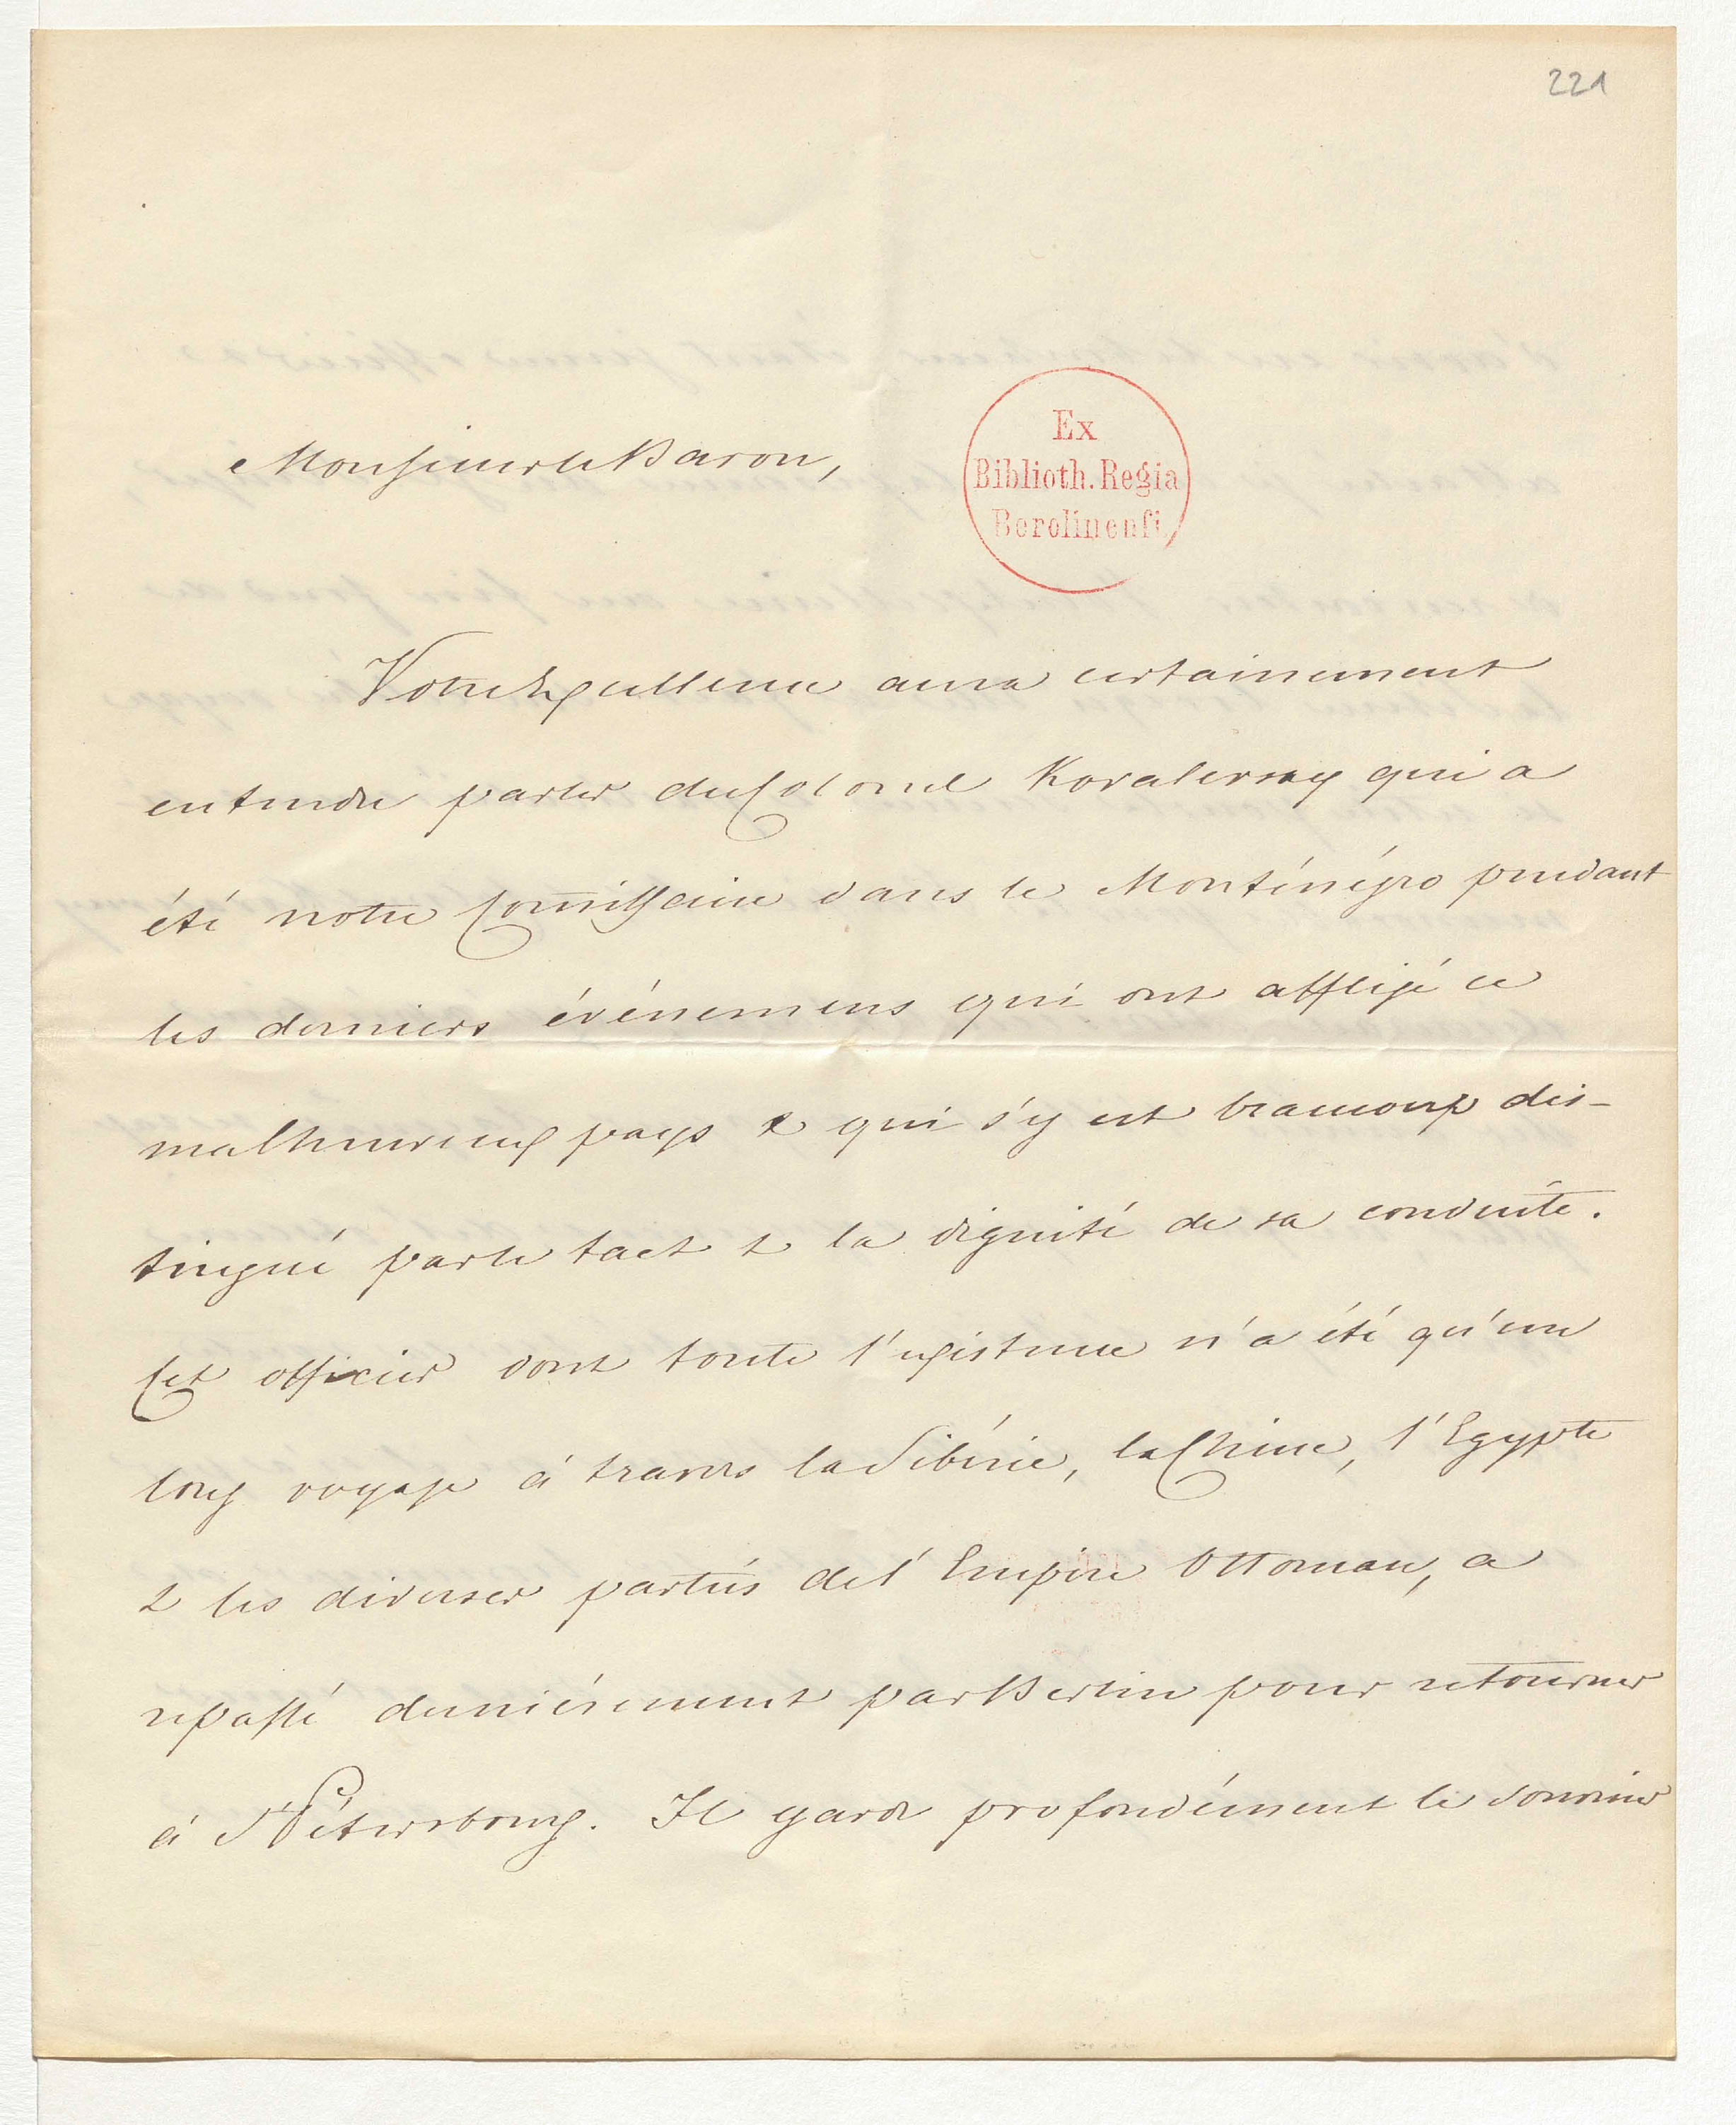 221
Monsieur le Baron,
Ex
Biblioth. Regia
Berolinensi
Votre Excellence aura certainement
entendu parler du Colonel Kovalevsky qui a
été notre Commissaire dans le Monténégro pendant
les derniers événemens qui ont affligé ce
malheureux pays & qui s'y est beaucoup dis-
tingué par le tact & la dignité de sa conduite.
Cet officier dont toute l'existence n'a été qu'un
long voyage à travers la Sibérie, la Chine, l'Egypte
& les diverses parties de l'Empire Ottoman, a
repassé dernièrement par Berlin pour retourner
à St Pétersbourg. Il garde profondément le souvenir